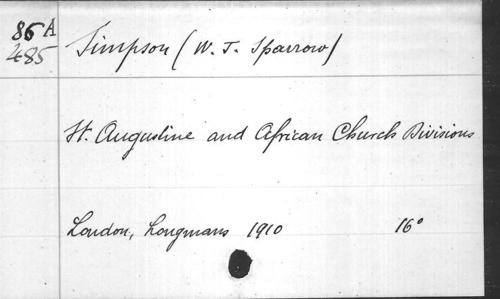 86 A
485
Simpson (W. J. Sparrow)
St. Augustine and African Church Divisions
London, Longmans 1910 16°